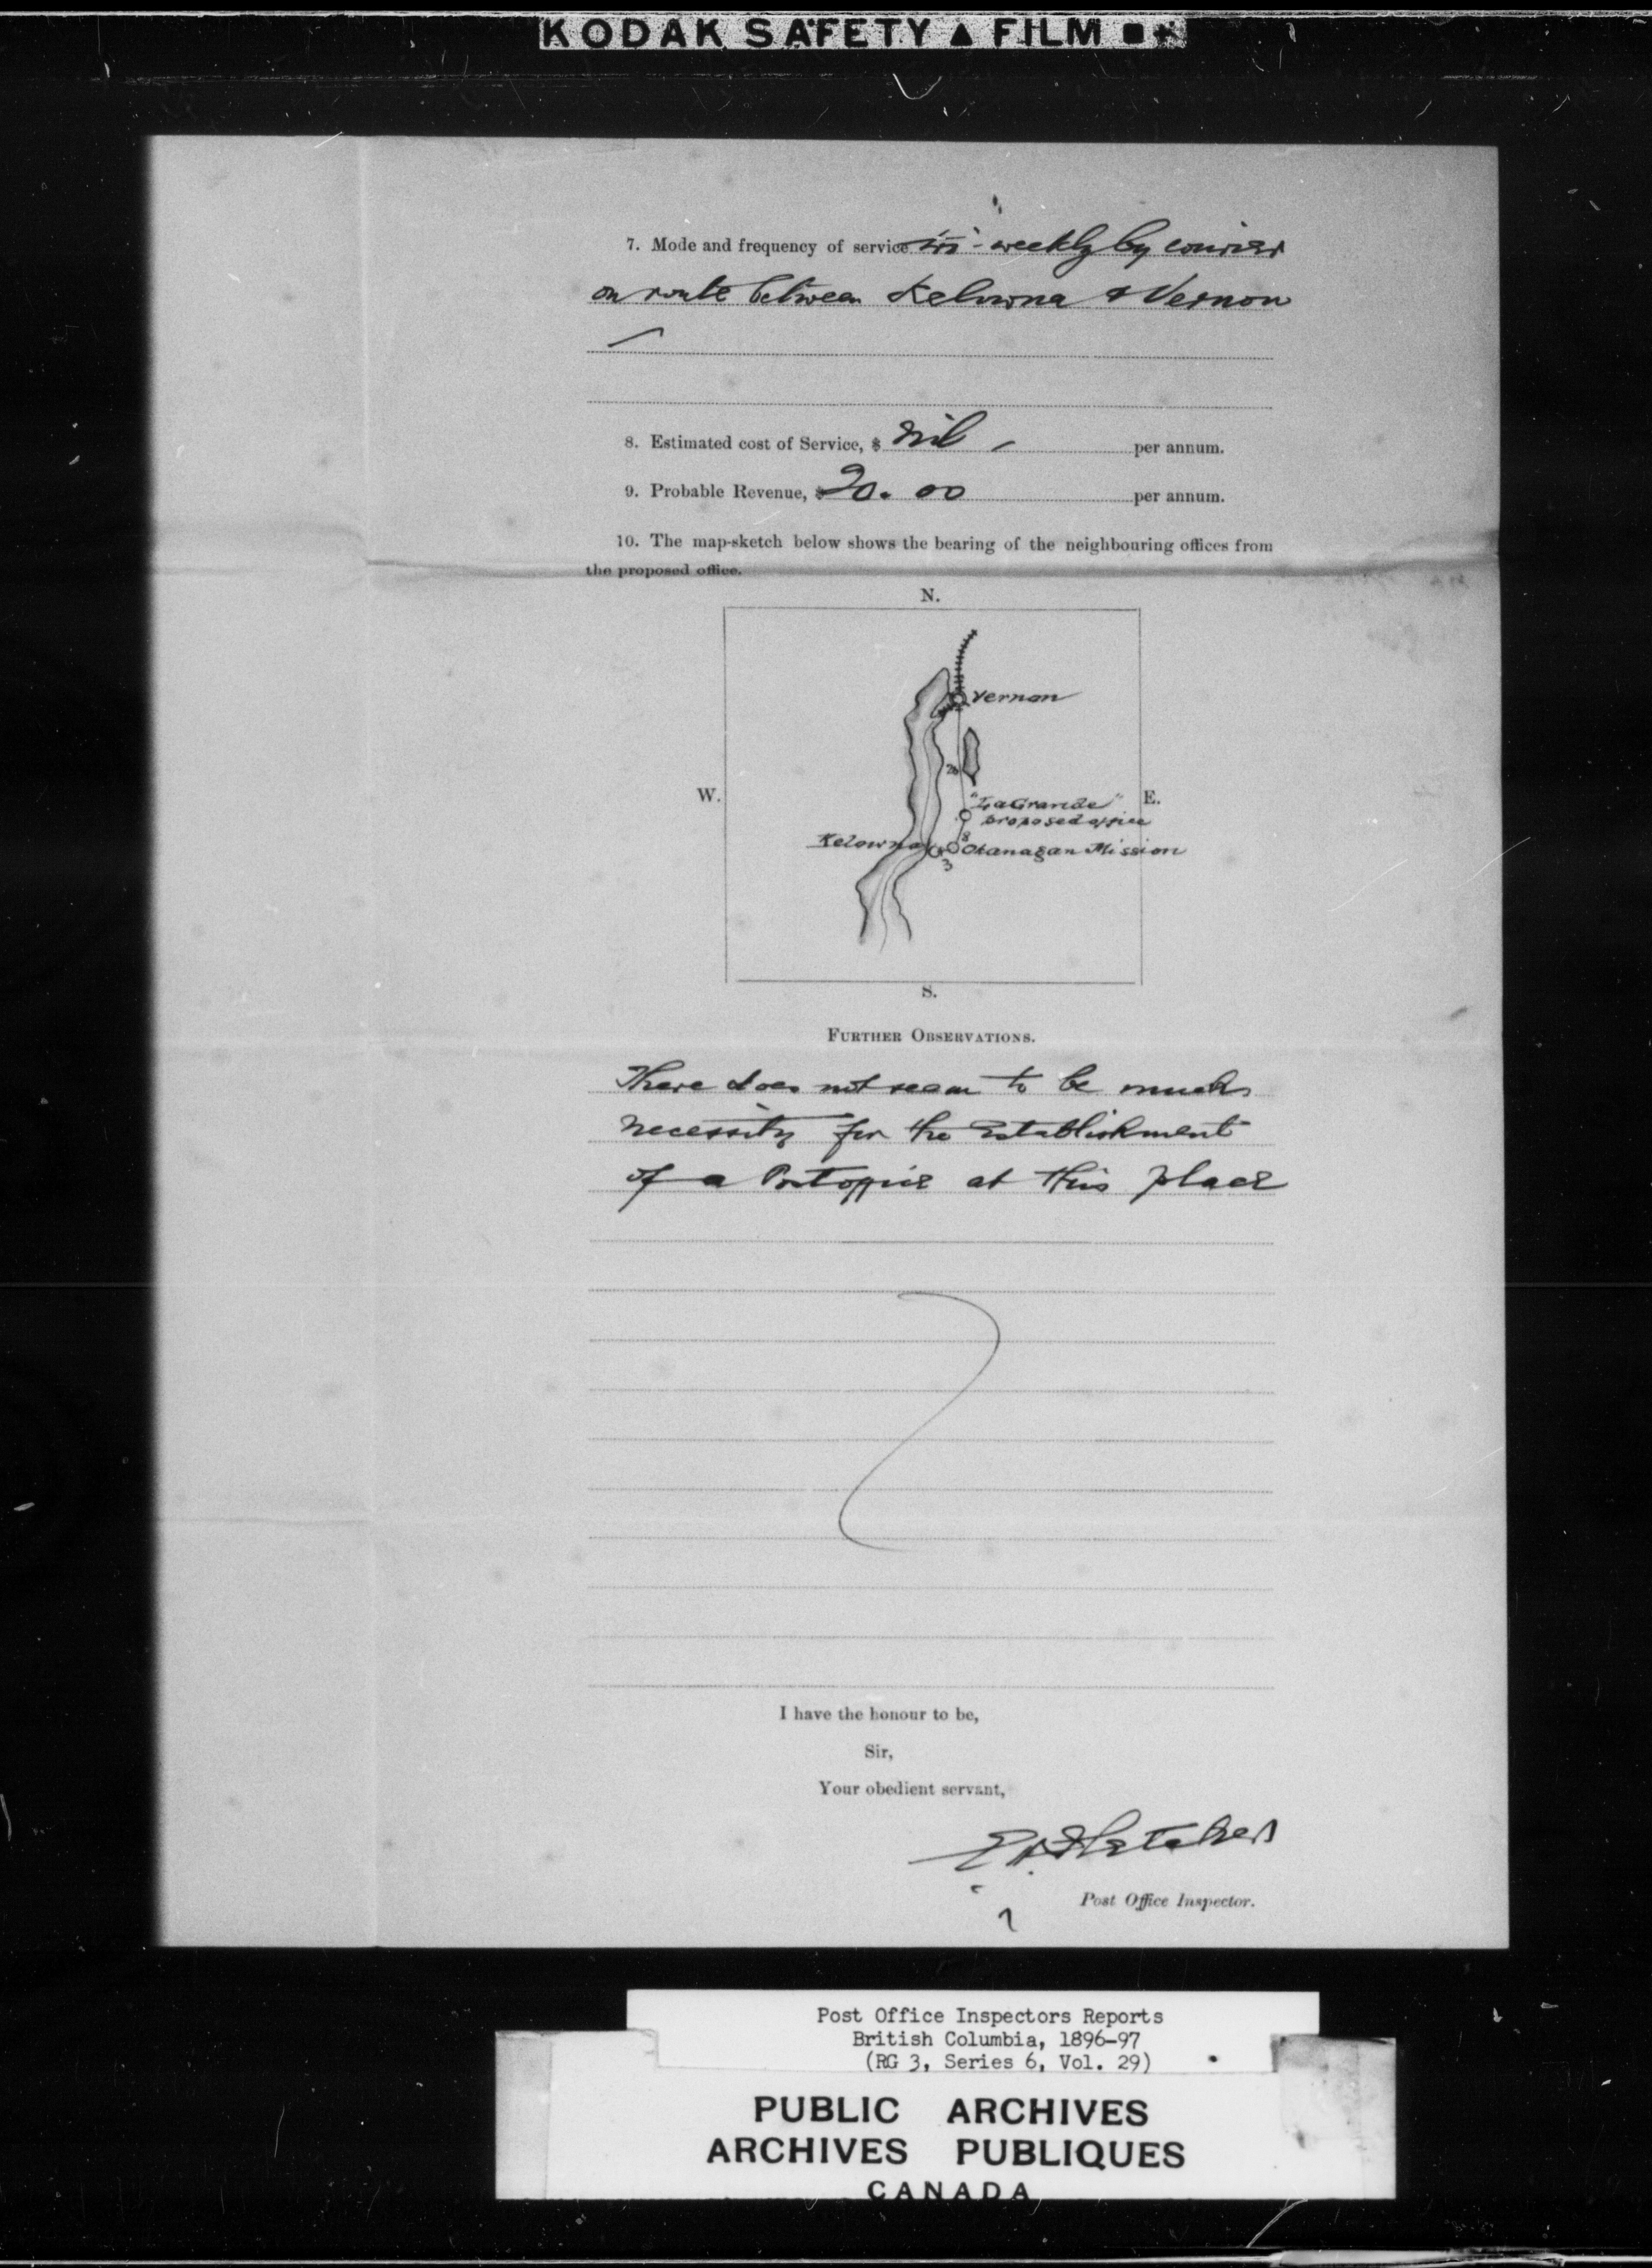 KODAK SAFETY ▲ FILM ■ +
7. Mode and frequency of service tri-weekly by courier
on route between Kelowna & Vernon
8. Estimated cost of Service, $ Nil - per annum.
9. Probable Revenue, $ 20.00 per annum.
10. The map-sketch below shows the bearing of the neighbouring offices from
the proposed office.
N.
Vernon
W.
E.
"La Grande"
proposed office
8
Kelowna
Okanagan Mission
3
S.
FURTHER OBSERVATIONS.
There does not seem to be much
necessity for the Establishment
of a Postoffice at this place
I have the honour to be,
Sir,
Your obedient servant,
E H Fletcher
Post Office Inspector.
Post Office Inspectors Reports
British Columbia, 1896-97
(RG 3, Series 6, Vol. 29)
PUBLIC ARCHIVES
ARCHIVES PUBLIQUES
CANADA